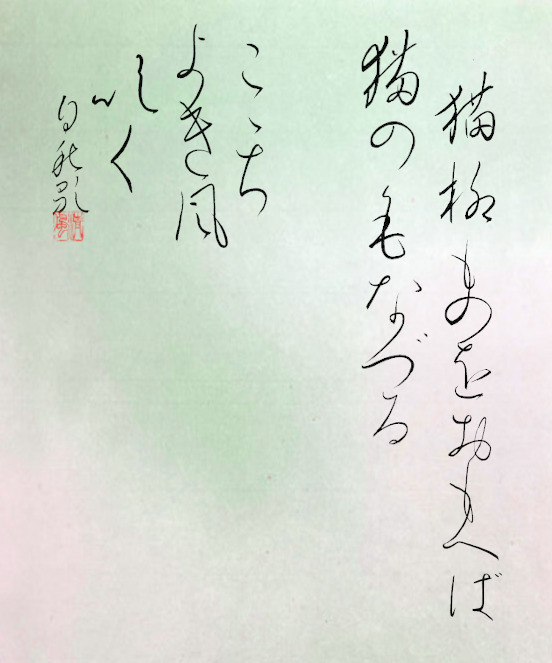 猫柳ものをおもへば
猫の毛なづる
ここち
よき風
く
白秋歌